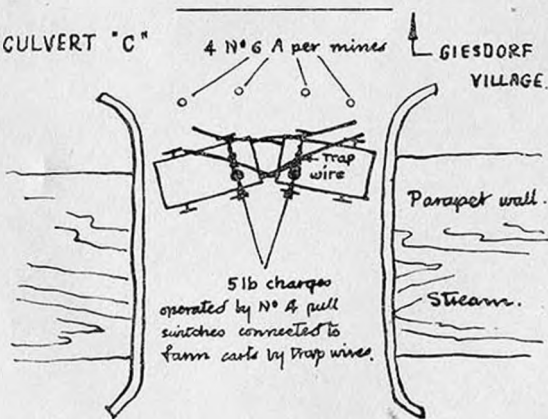 CULVERT "C"
4 Nº 6 A per mines
GIESDORF
VILLAGE.
Trap
wire
Parapet wall.
5 lb charges
operated by Nº 4 pull
switches connected to
farm carts by trap wires.
Stream.